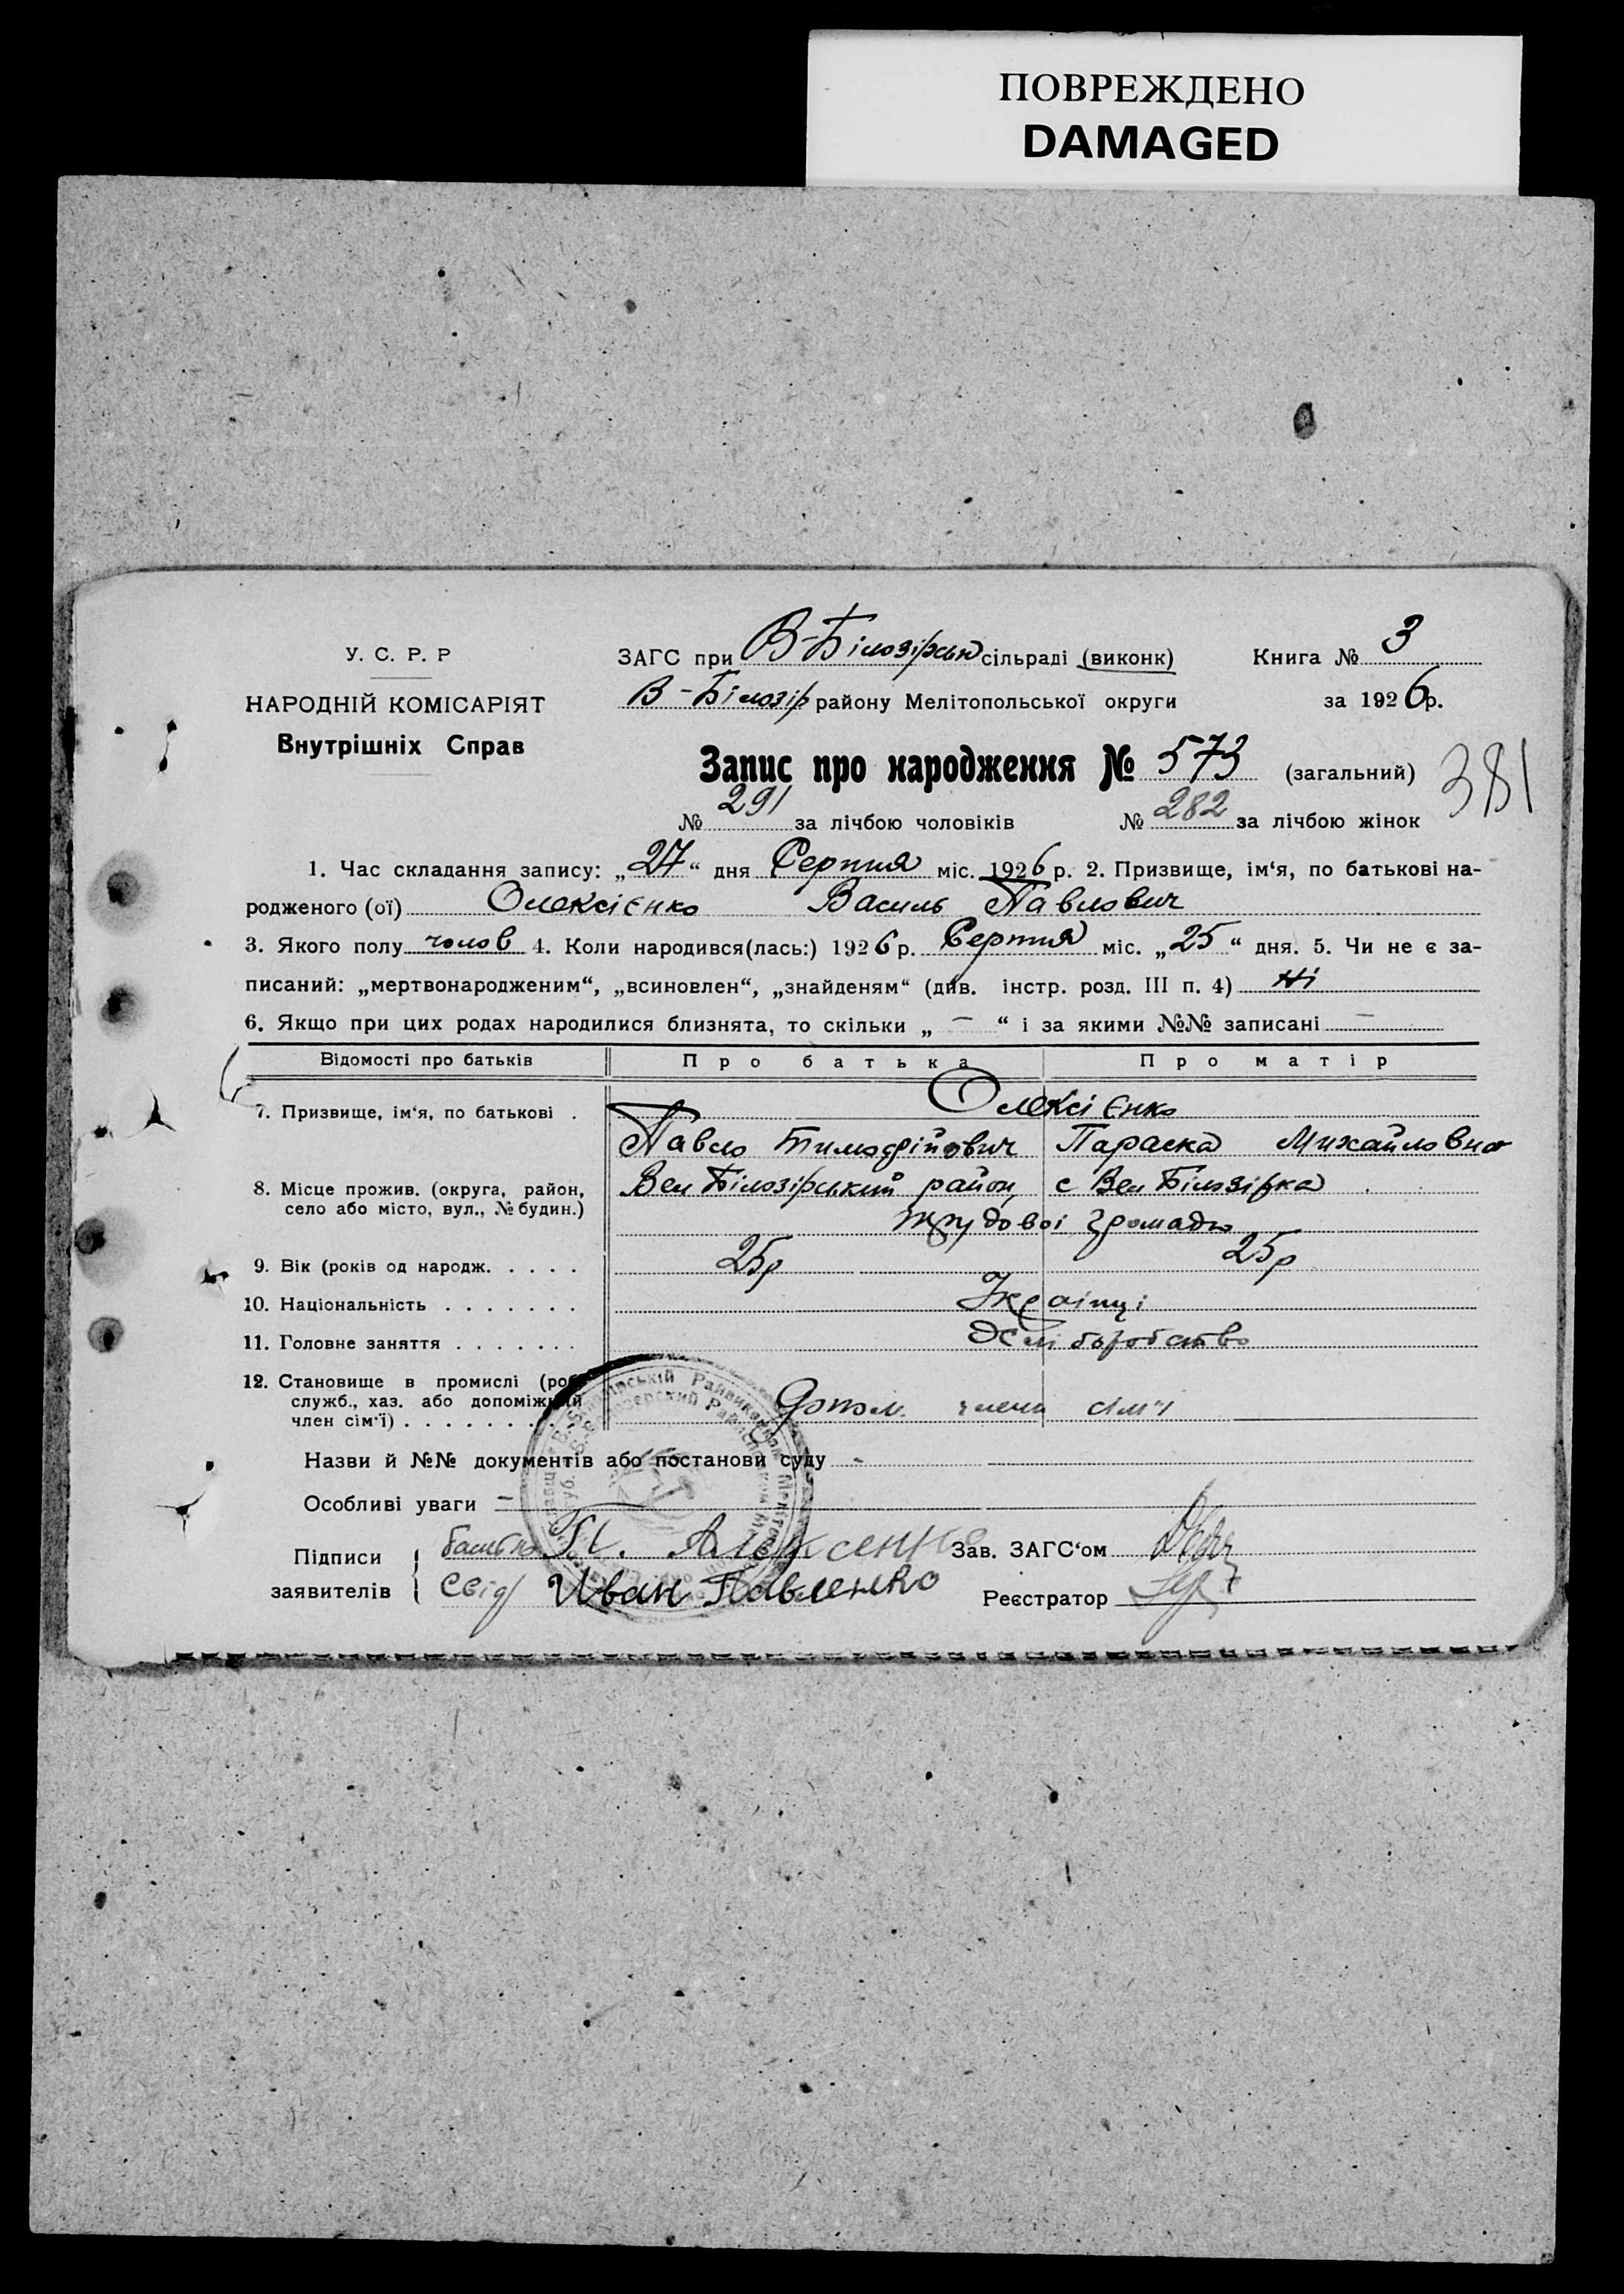 ПОВРЕЖДЕНО
DAMAGED
У. С. Р. Р
НАРОДНІЙ КОМІСАРІЯТ
Внутрішніх Справ
ЗАГС при В-Білозірськ сільраді (виконк)
В-Білозір району Мелітопольської округи
Книга № 3
за 1926р.
Запис про народження № 573 (загальний)
381
№ 291 за лічбою чоловіків № 282 за лічбою жінок
1. Час складання запису: „27“ дня Серпня міс. 1926 р. 2. Призвище, ім‘я, по батькові на-
родженого (ої) Олексієнко Василь Павлович
3. Якого полу чолов 4. Коли народився(лась:) 1926 р. Серпня міс. „25“ дня. 5. Чи не є за-
писаний: „мертвонародженим“, „всиновлен“, „знайденям“ (див. інстр. розд. III п. 4) Ні
6. Якщо при цих родах народилися близнята, то скільки „ — “ і за якими №№ записані —
Відомості про батьків Про батька Про матір
7. Призвище, ім‘я, по батькові . Олексієнко
Павло Тимофійович Параска Михайловна
8. Місце прожив. (округа, район, село або місто, вул., № будин.) Вел Білозірський район, с Вел Білозірка
трудової громади
9. Вік (років од народж. . . . . 25р 25р
10. Національність . . . . . . . Українці
11. Головне заняття . . . . . . . Хліборобство
12. Становище в промислі (роб
служб., хаз. або допоміжний
член сім‘ї) . . . . . . . . . Допом. члени сім'ї
Назви й №№ документів або постанови суду -
Особливі уваги —
Підписи заявителів
батько П. Алексеінко
Свід Иван Павленко
Зав. ЗАГС‘ом
Реєстратор